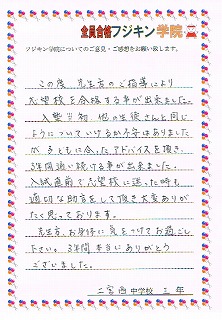 全員合格フジキン学院
フジキン学院についてのご意見・ご感想をお願い致します。
この度、先生方のご指導により
志望校を合格する事が出来ました。
入塾当初、他の生徒さんと同じ
ようについていけるか不安はありました
が、子どもに合ったアドバイスを頂き、
3年間通い続ける事が出来ました。
入試直前で志望校に迷った時も
適切な助言をして頂き大変ありが
たく思っております。
先生方、お身体に気をつけてお過ごし
下さい。3年間本当にありがとう
ございました。
二宮西中学校 三年